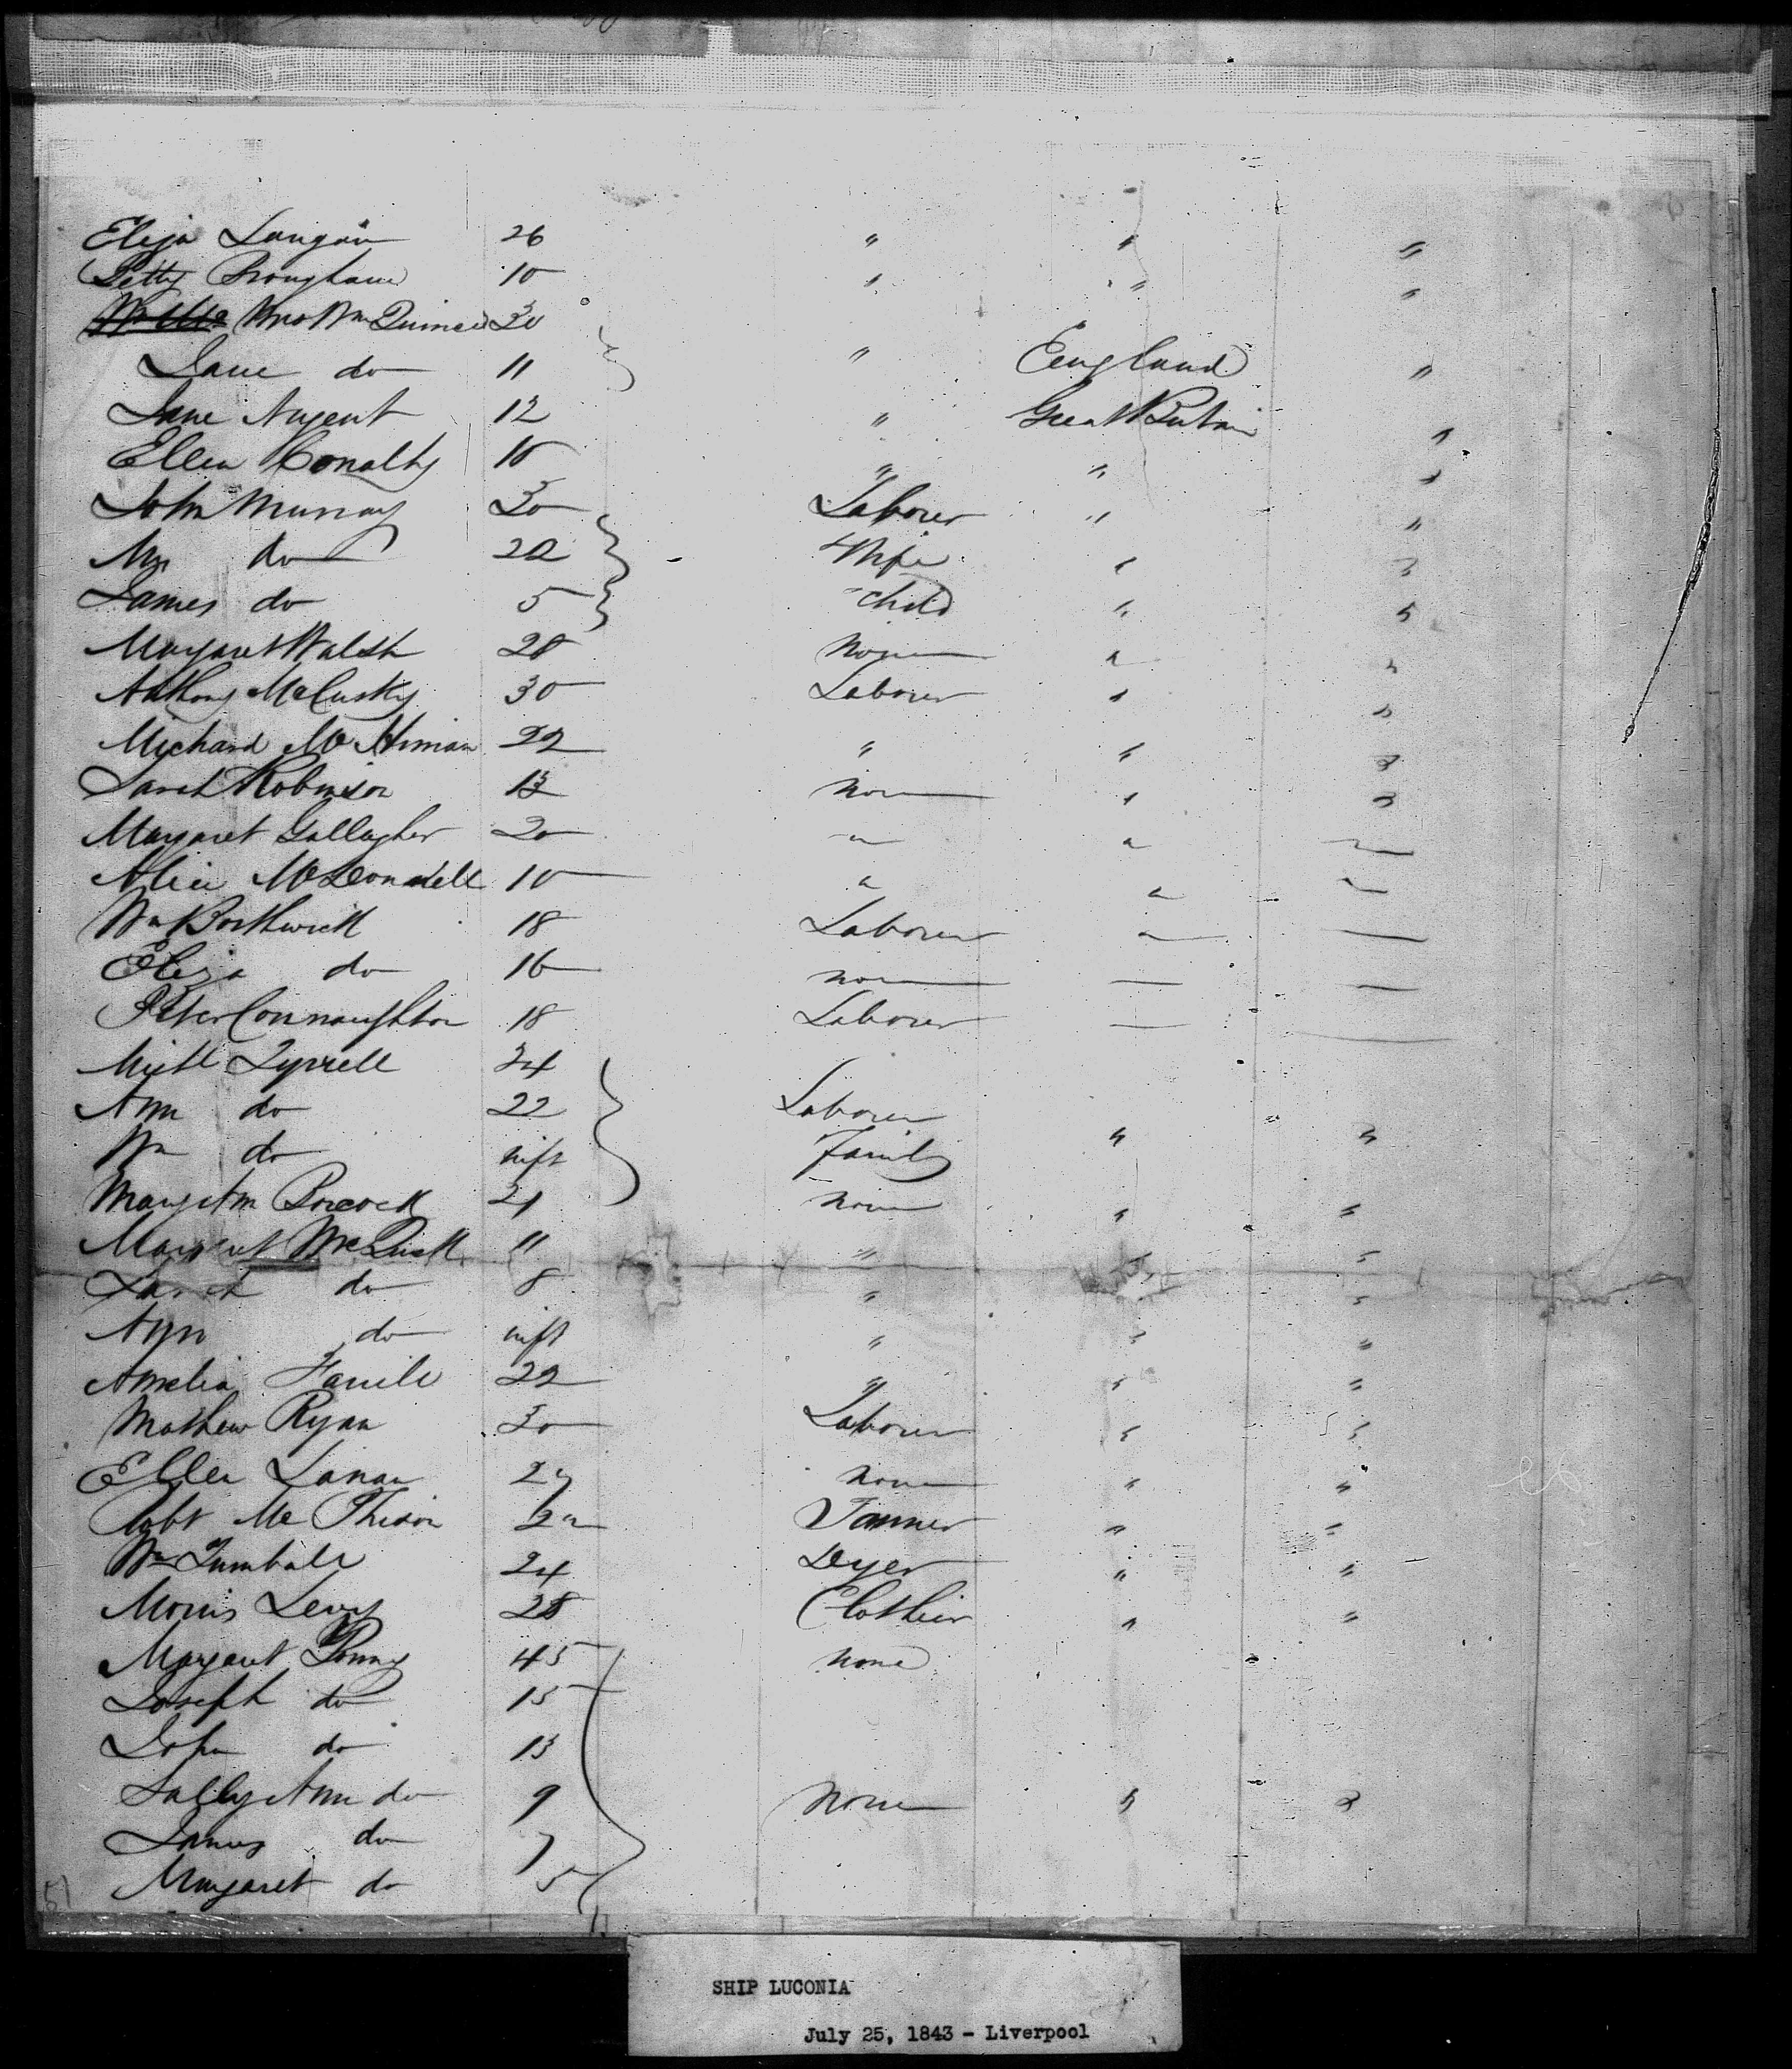 Eliza Langan 26 " " "
Betty Brougham 10 " " "
Mrs Wm 30
Jane do 11 " England "
Jane Nugent 12 " Great Britain "
Ellen Conalty 18 " " "
John Murray 30 Laborer " "
Mrs do 22 Wife " "
James do 5 child " "
Margaret Walsh 28 none " "
Anthony McCusky 30 Laborer " "
Michard 22 " " "
Sarah Robinson 13 none " "
Margaret Gallagher 20 " " "
Alice McDonnell 10 " " "
Wm Borthwick 18 Laborer "
Eliza do 16 none
Peter Connaughton 18 Laborer
Michl Tyrrell 34
Ann do 22 Laborer
Wm do inft Family " "
Mary Ann 21 none " "
Margaret McQuick 11 " " "
Sarah do 8 " "
Ann do inft " " "
Amelia 22 " " "
Mathew Ryan 30 Laborer " "
Ellen Lanan none " "
Robt Mc Tanner " "
Wm Turnbull 24 Dyer " "
Morris Levy 28 Clothier " "
Margaret 45 none
Joseph do 15
John do 13
Sally Ann do 9 none " "
James do 7
Margaret do 5
51
SHIP LUCONIA
July 25, 1843 - Liverpool